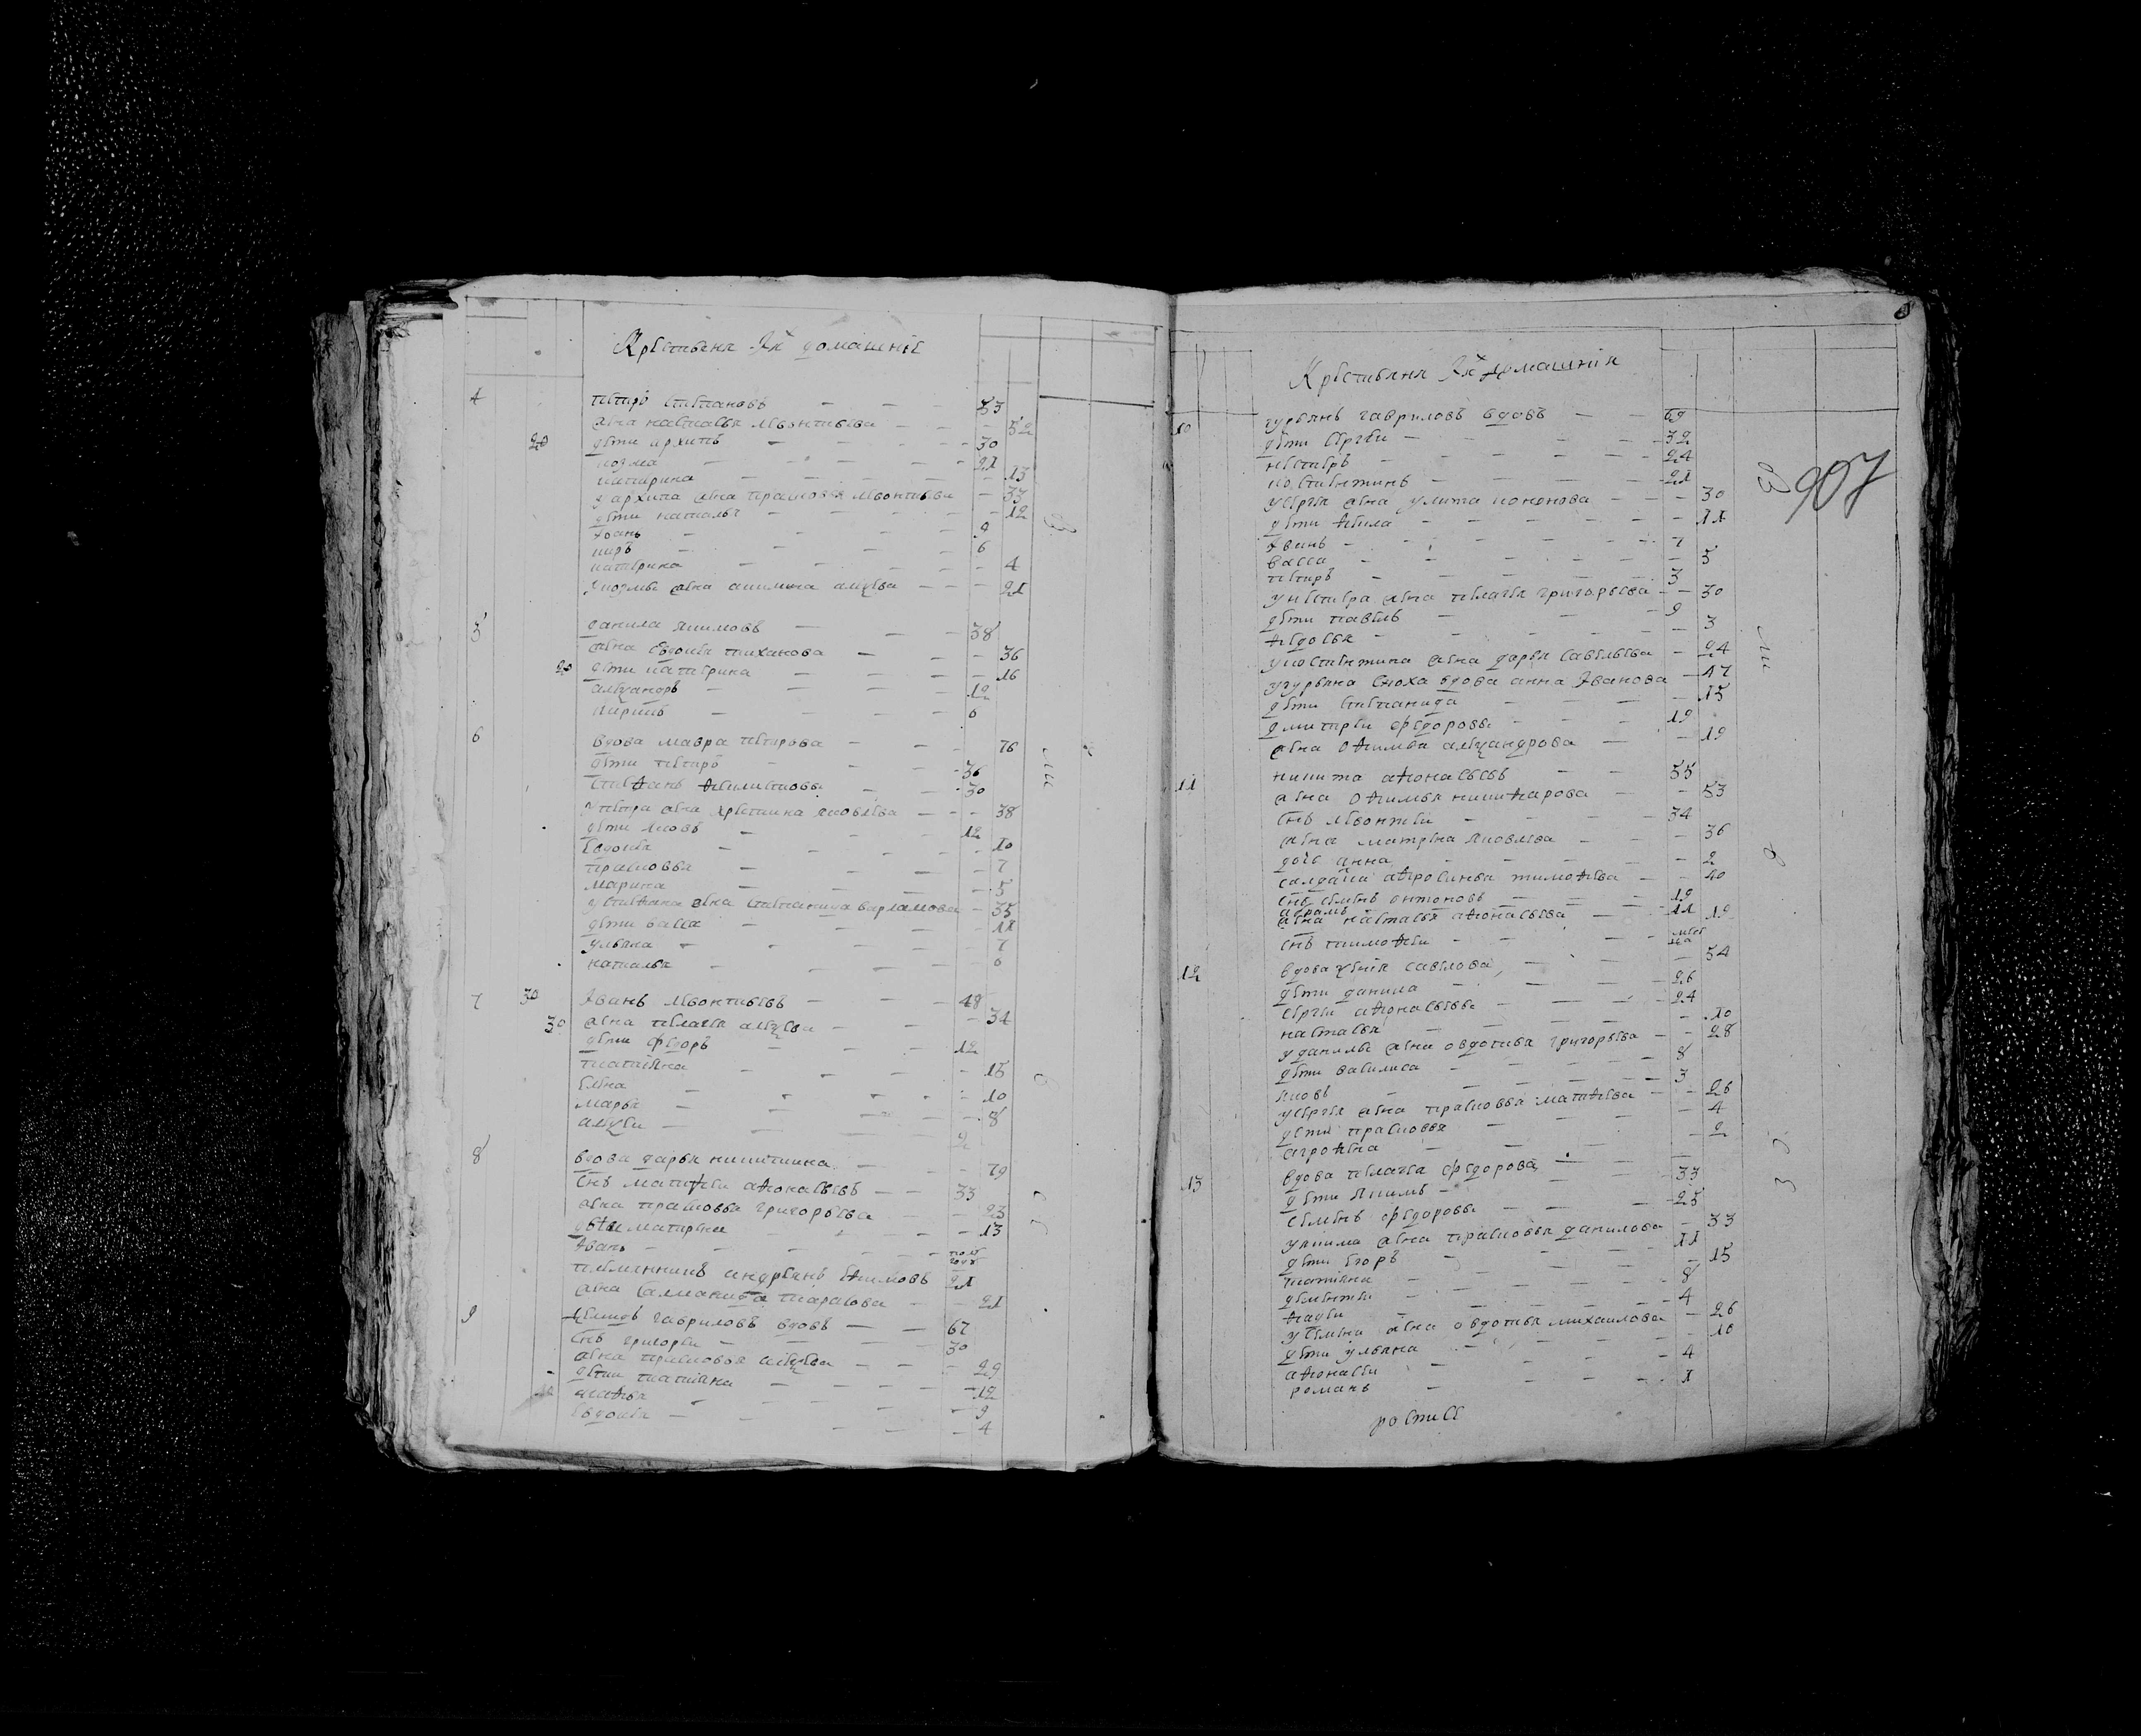 Крестьяня Их домашние
4 петръ степановъ 53
жена настасья левонтьева 52
20 дети архипъ 30
козма 21
катирина 13
у архипа жена прасковья левонтьева 33
дети наталья 12
Ѳвань 9
киръ 6
катерина 4
у козмы жена акилина алеѯева 21
5 данила якимовъ 38
жена Евдокия тиханова 36
20 дети катерина 16
алеѯандръ 12
6
6 вдова мавра петирова 76
дети петръ 36
степѳанъ 30
у петра жена христина яковлева 38
дети яковъ 12
Евдокия 10
прасковья 7
марина 5
у степѳана жена степанида варламова 35
дети васса 11
ульяна 7
наталья 6
7 30 Иванъ левонтьевъ 48
30 жена пелагея алеѯева 34
дети Ѳедоръ 12
татияна 15
Елена 10
марья 8
алеѯеи 2
8 вдова дарья никитина 79
снъ матвеи аѳонасьевъ 33
жена прасковья григорьева 23
дети матрена 13
Иванъ полъ года
племянникъ андреянъ Еѳимовъ 21
жена саламанида тарасова 21
9 гавриловъ вдовъ 67
снъ григореи 30
жена прасковья алеѯева 29
дети татияна 12
агаѳья 9
Евдокия 4
Крестьяня Их домашния
907
10 гурьянъ гавриловъ вдовъ 69
дети сергеи 32
нестеръ 24
костентинъ 21
у сергея жена улита кононова 30
дети Ѳекла 11
Иванъ 7
васса 5
петиръ 3
у нестера жена пелагея григорьева 30
дети павелъ 9
Ѳедосья 3
у костентина жена дарья савельева 24
у гурьяна сноха вдова анна Иванова 47
дети степанида 15
дмитреи Ѳедоровъ 19
жена оѳимья алеѯандрова 19
11 никита аѳонасьевъ 55
жена оѳимья никиѳарова 53
снъ левонтеи 34
жена матрена яковлева 36
дочь анна 2
салдатка аѳросинья тимоѳеева 40
снъ семенъ онтоновъ 19
абрамъ 11
жена настасья аѳонасьева 19
снъ тимоѳеи
12 вдова савелова 54
дети данила 26
сергеи аѳонасьевы 24
настасья 10
у данилы жена овдотья григорьева 28
дети василиса 8
яковъ 3
у сергея жена прасковья матвеева 26
дети прасковья 4
агроѳена 2
13 вдова пелагея Ѳедорова
дети якимъ 33
семенъ Ѳедоровы 25
у якима жена прасковья данилова 33
дети Егоръ 11
татияна 15
дементеи 8
Ѳадеи 4
у семена жена овдотья михаилова 26
дети ульяна 10
аѳонасеи 4
романъ 1
росписе